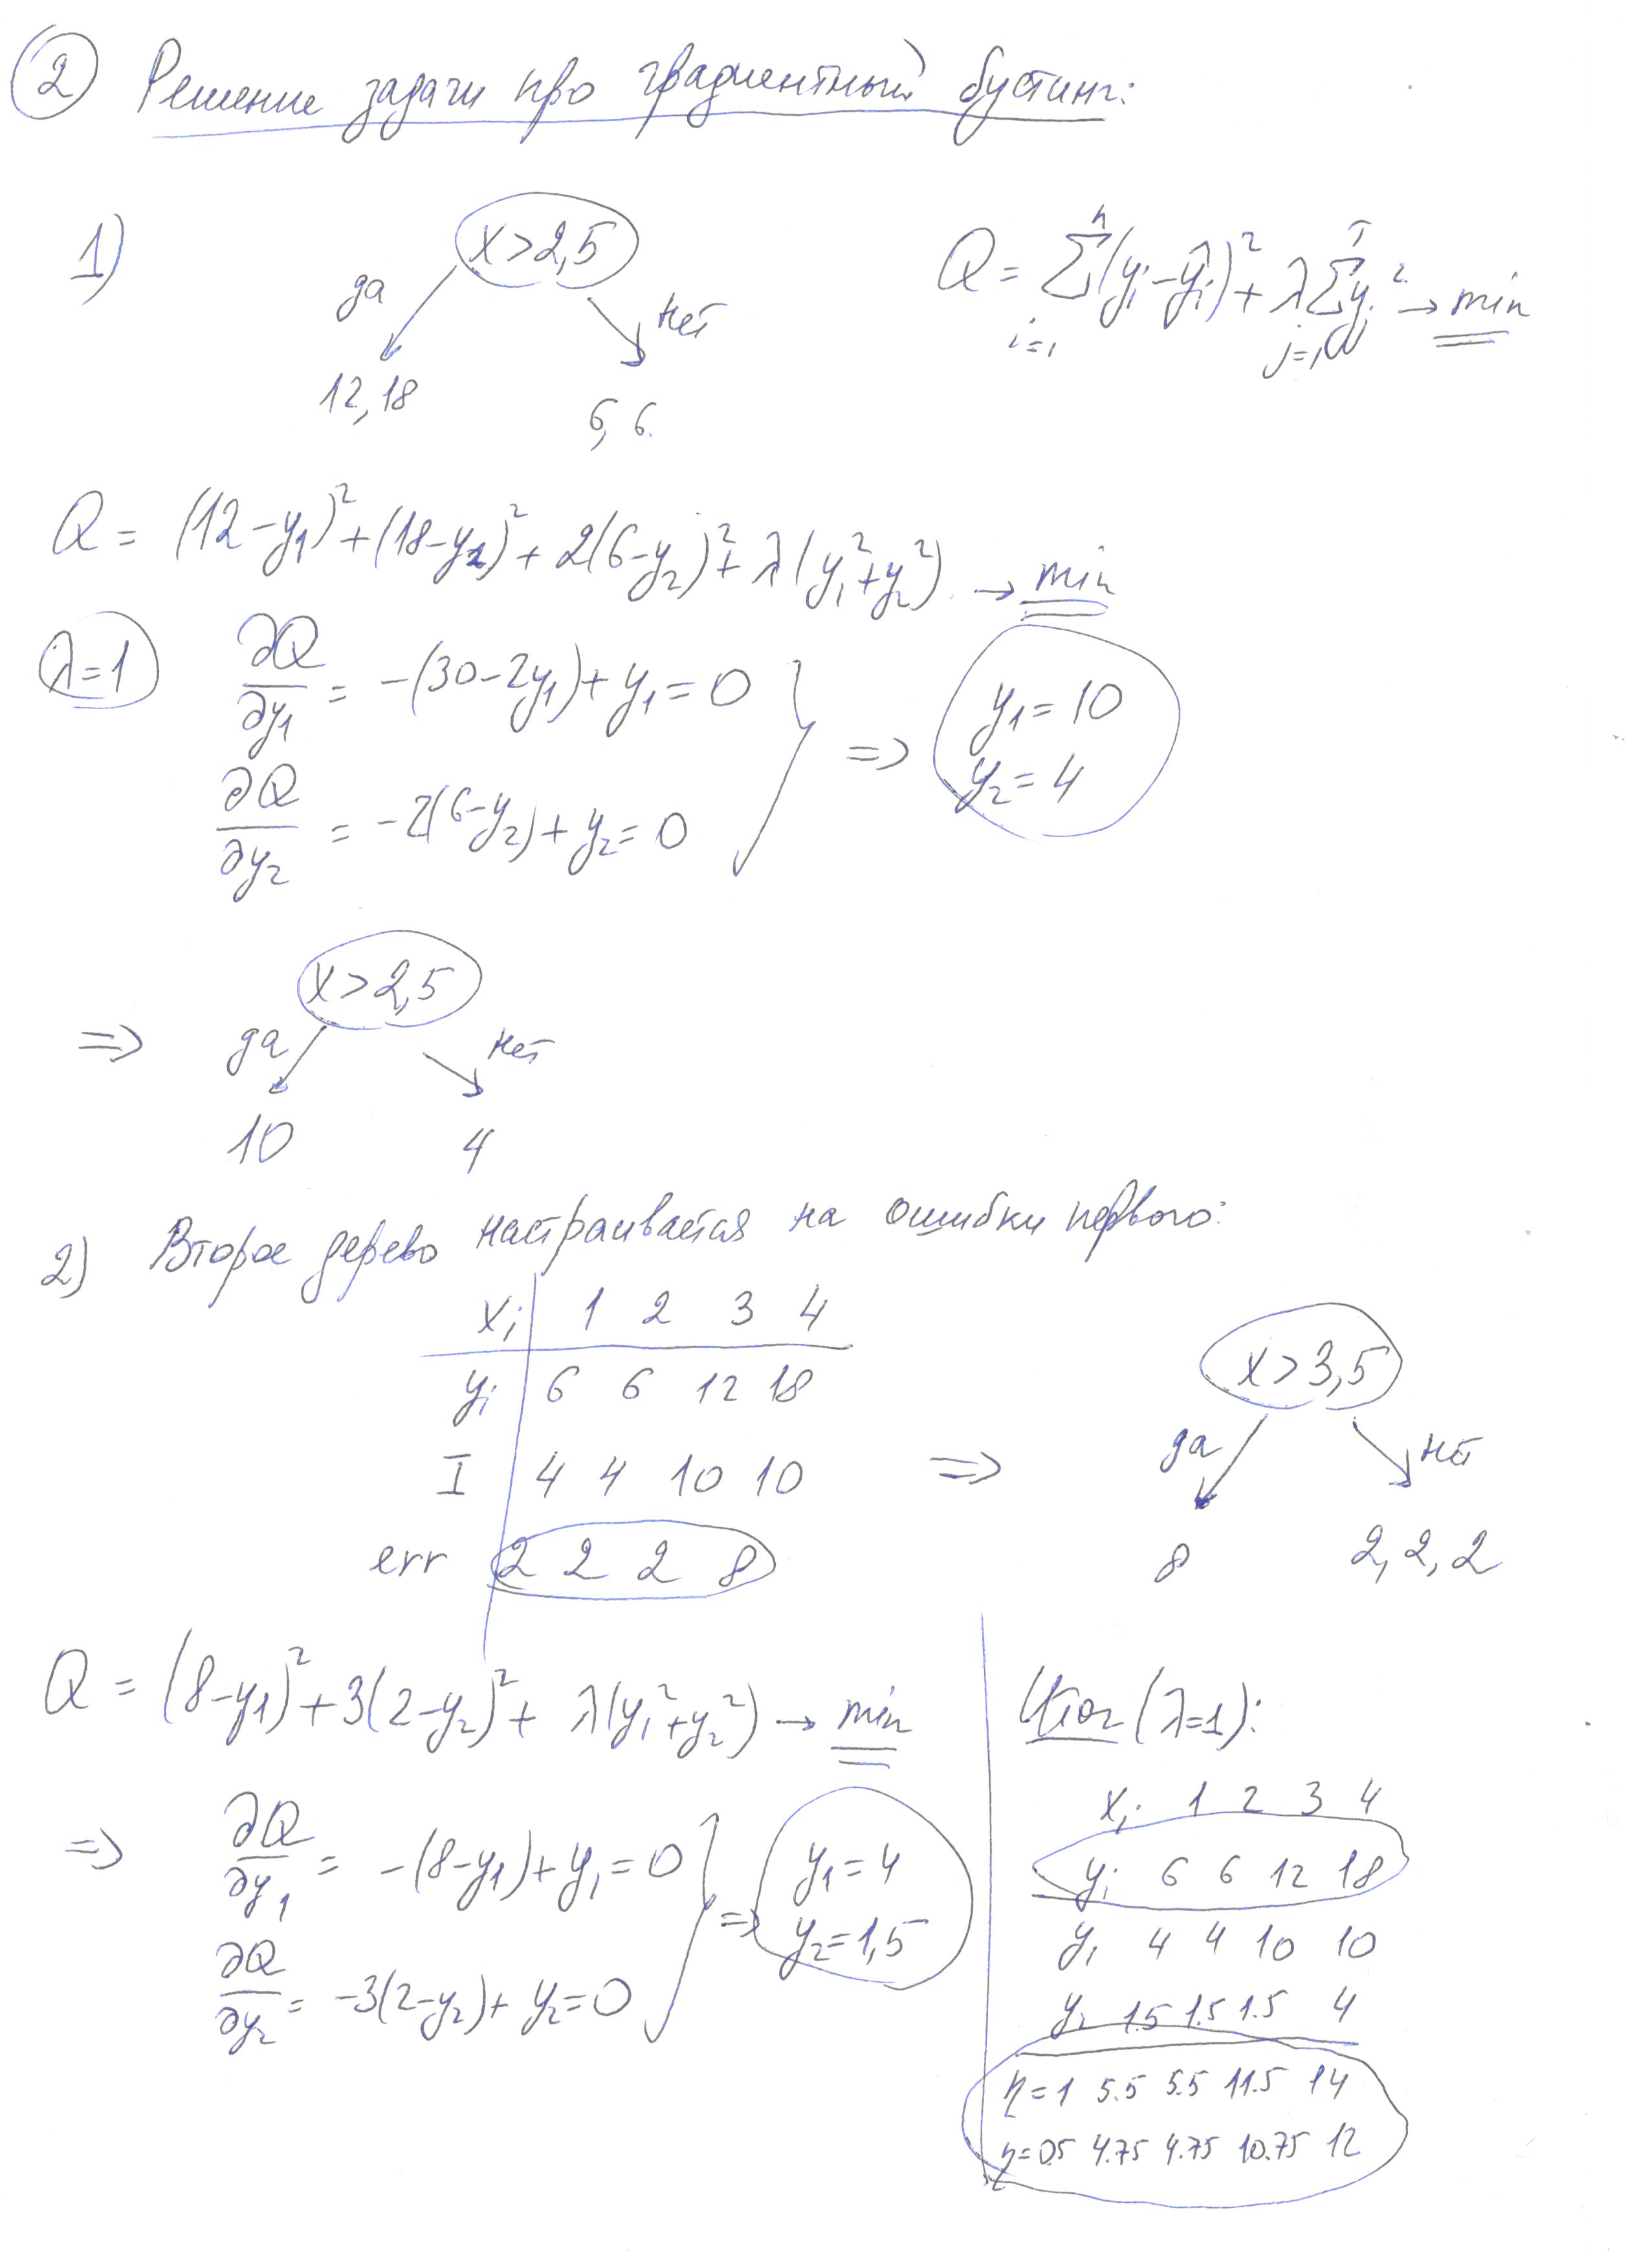 2 Решение задачи про градиентный бустинг:
1) x>2,5
да нет
12,18 6, 6.
Q = Σ(yᵢ-ŷᵢ)² + λΣyⱼ² → min
n i=1 T j=1
Q = (12-y₁)²+(18-y₁)²+2(6-y₂)²+λ(y₁²+y₂²) → min
λ=1 ∂Q/∂y₁ = -(30-2y₁)+y₁=0
∂Q/∂y₂ = -2(6-y₂)+y₂=0
=> y₁=10
y₂=4
=> x>2,5
да нет
10 4
2) Второе дерево настраивается на ошибки первого:
xᵢ 1 2 3 4
yᵢ 6 6 12 18
I 4 4 10 10
err 2 2 2 8
=> x>3,5
да нет
8 2, 2, 2
Q = (8-y₁)²+3(2-y₂)²+λ(y₁²+y₂²) → min
=> ∂Q/∂y₁ = -(8-y₁)+y₁=0
∂Q/∂y₂ = -3(2-y₂)+y₂=0
=> y₁=4
y₂=1,5
Итог (λ=1):
xᵢ 1 2 3 4
yᵢ 6 6 12 18
y₁ 4 4 10 10
y₂ 1.5 1.5 1.5 4
η=1 5.5 5.5 11.5 14
η=0.5 4.75 4.75 10.75 12